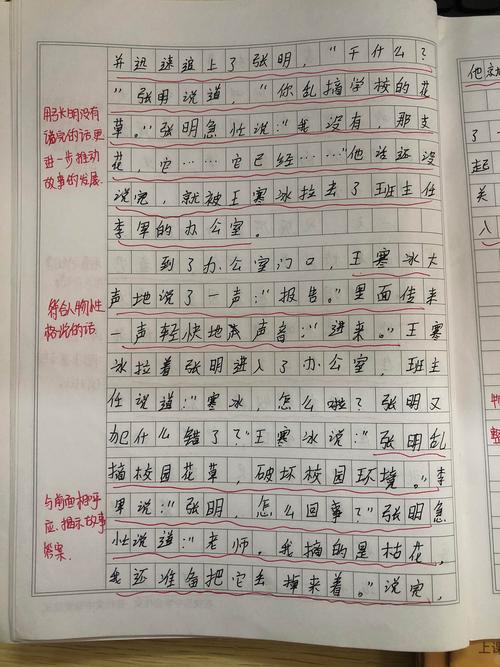 并迅速追上了张明，“干什么？
”张明说道，“你乱摘学校的花
草。”张明急忙说：“我没有，那支
花，它……它已经……”他话还没
说完，就被王寒冰拉去了班主任
李果的办公室。
到了办公室门口，王寒冰大
声地说了一声：“报告。”里面传来
一声轻快地声音：“进来。”王寒
冰拉着张明进入了办公室，班主
任说道：“寒冰，怎么啦？张明又
犯什么错了？”王寒冰说：“张明乱
摘校园花草，破坏校园环境。”李
果说：“张明，怎么回事？”张明急
忙说道：“老师。我摘的是枯花，
我还准备把它丢掉来着。”说完，
用张明没有
说完的话更
进一步推动
故事的发展.
符合人物性
格说的话
与前面相呼
应，揭示故事
答案.
他就
了
起
关
入